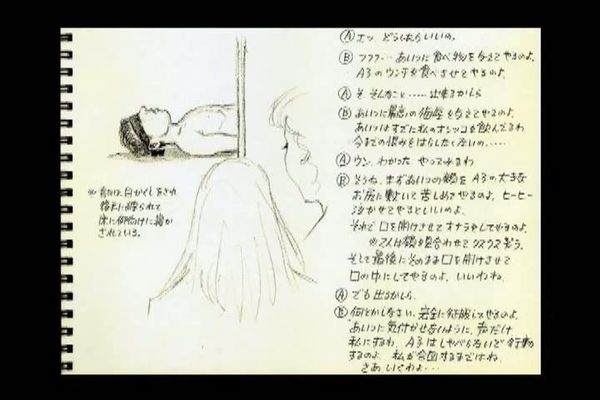 Ⓐ エッ どうしたらいいの。
Ⓑ フフフ… あいつに食べ物を与えてやるのよ、
A子のウンチを食べさせてやるのよ。
Ⓐ そ そんなこと…… 出来るかしら
Ⓑ あいつに最高の侮辱を与えてやるのよ、
あいつはすでに私のオシッコを飲んでるわ
今までの恨みをはらしたくないの……
Ⓐ ウン、わかった やってみるわ
Ⓑ そうね、まずあいつの顔を A子の大きな
お尻に敷いて苦しめてやるのよ。ヒーヒー
泣かせてやるといいのよ。
それで口を開けさせてオナラをしてやるのよ。
※2人は顔を見合わせてクスクス笑う。
そして最後にそのまま口を開けさせて
口の中にしてやるのよ。いいわね。
Ⓐ でも出るかしら。
Ⓑ 何とかしなさい、完全に征服してやるのよ。
あいつに気付かせないように、声だけ
私にするわ、A子はしゃべらないで行動
するのよ、私が合図するまではね。
さあ いくわよ…
※ は、目かくしをされ
後手に縛られて
床に仰向けに寝か
されている。